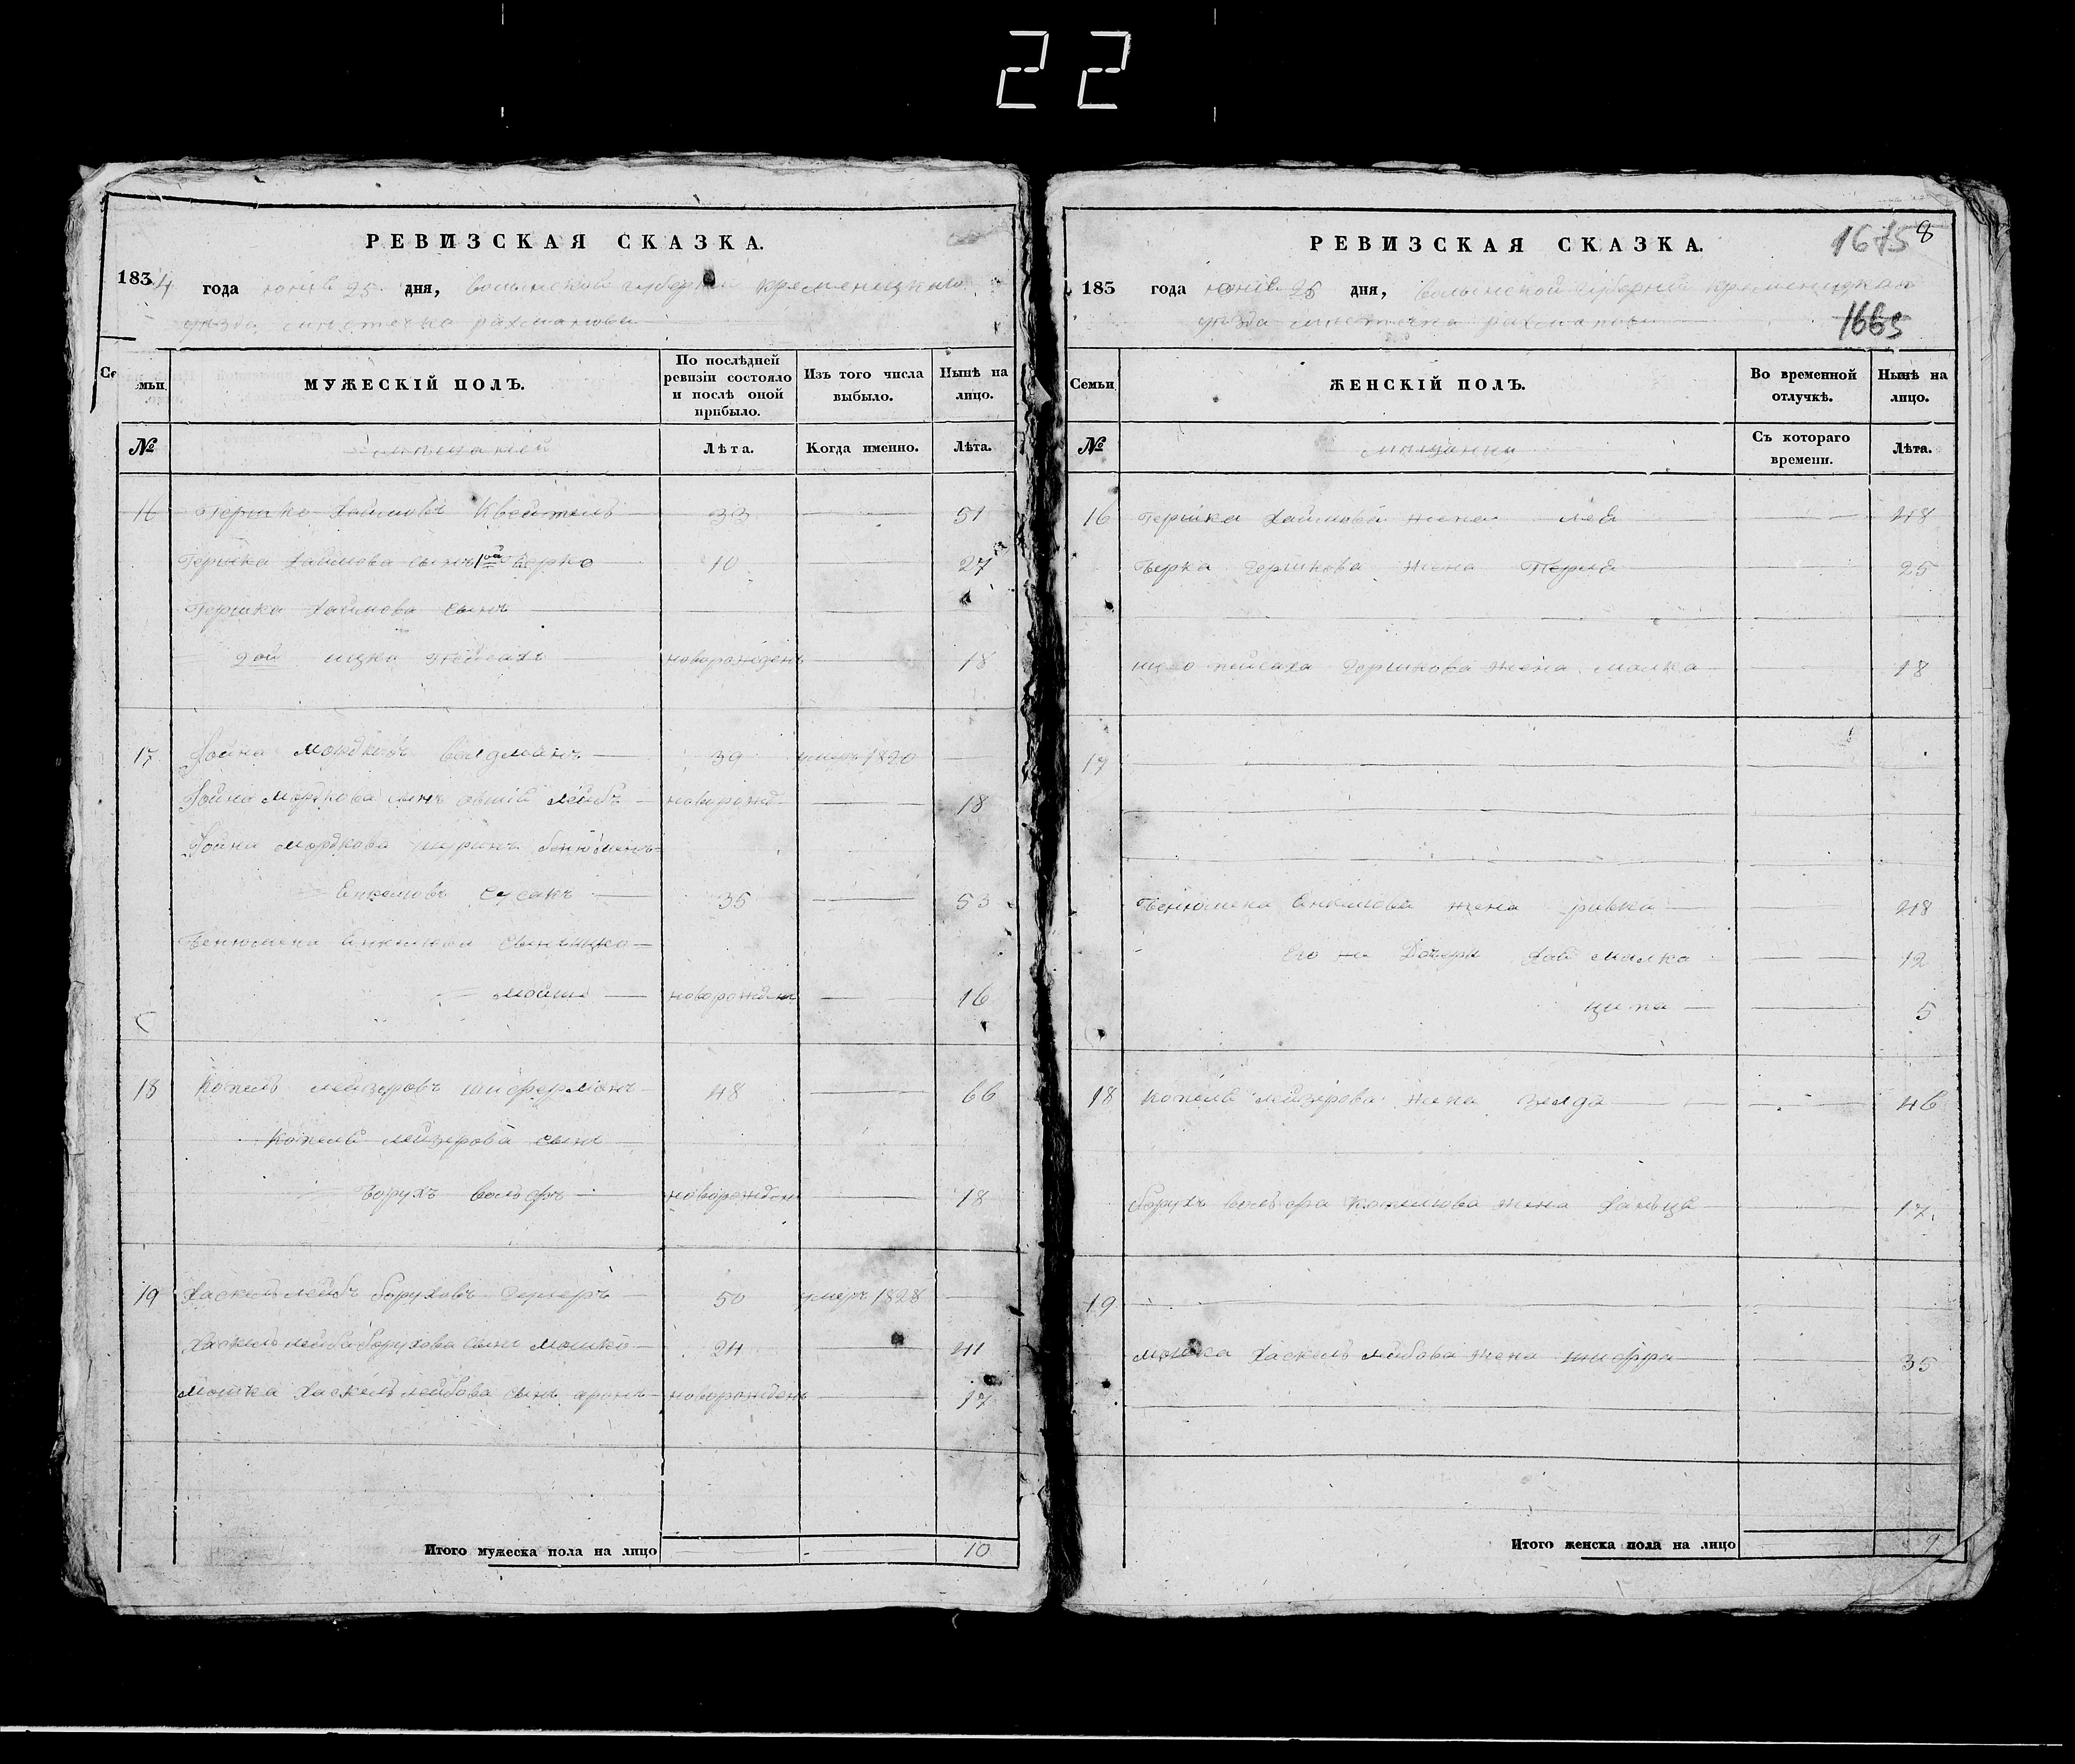 22
РЕВИЗСКАЯ СКАЗКА.
1834 года июня 25 дня, Волынской губернии Кременецкаго
уезда местечка Рахманова
Семьи
МУЖЕСКІЙ ПОЛЪ.
По послѣдней ревизіи состояло и послѣ оной прибыло.
Изъ того числа выбыло.
Нынѣ на лицо.
№
Лѣта.
Когда именно.
Лѣта.
16 Гершко Хаимовъ 33 51
Гершка Хаимова сынъ 1вый Берко 10 27
Гершка Хаимова сынъ
2ой Ицко Пейсахъ новорожденъ 18
17 Мордковъ Валдманъ 39 умеръ 1820
Мордкова сынъ Лейбъ новорожд 18
Мордкова шуринъ Бенюменъ
35 53
сынъ Ицко
Мошко новорожден 16
18 Копель Лейзеровъ Шиферманъ 48 66
Копеля Лейзерова сынъ
Борухъ Вольфъ новорожден 18
19 Хаскель Лейбъ Боруховъ 50 умеръ 1828
Хаскель Лейба Борухова сынъ Мошко 24 41
Мошка Хаскель Лейбова сынъ Аронъ новорожденъ 17
Итого мужеска пола на лицо 10
РЕВИЗСКАЯ СКАЗКА.
1675 8
183 года июня 25 дня, Волынской губерніи Кременецкаго
уезда местечка Рахманова
1665
Семьи
ЖЕНСКІЙ ПОЛЪ.
Во временной отлучкѣ.
Нынѣ на лицо.
№
мещанки
Съ котораго времени.
Лѣта.
16 Гершка Хаимова жена Лея 48
Берка Гершкова жена Перля 25
Ицко Пейсаха Гершкова жена Малка 18
17
Бенюмена жена Ривка 48
Его же дочери Хая Малка 12
Ципа 5
18 Копеля Лейзерова жена Зелда 46
Борухъ Вольфа Копелюва жена 17
19
Мошка Хаскель Лейбова жена Шифра 35
Итого женска пола на лицо 9